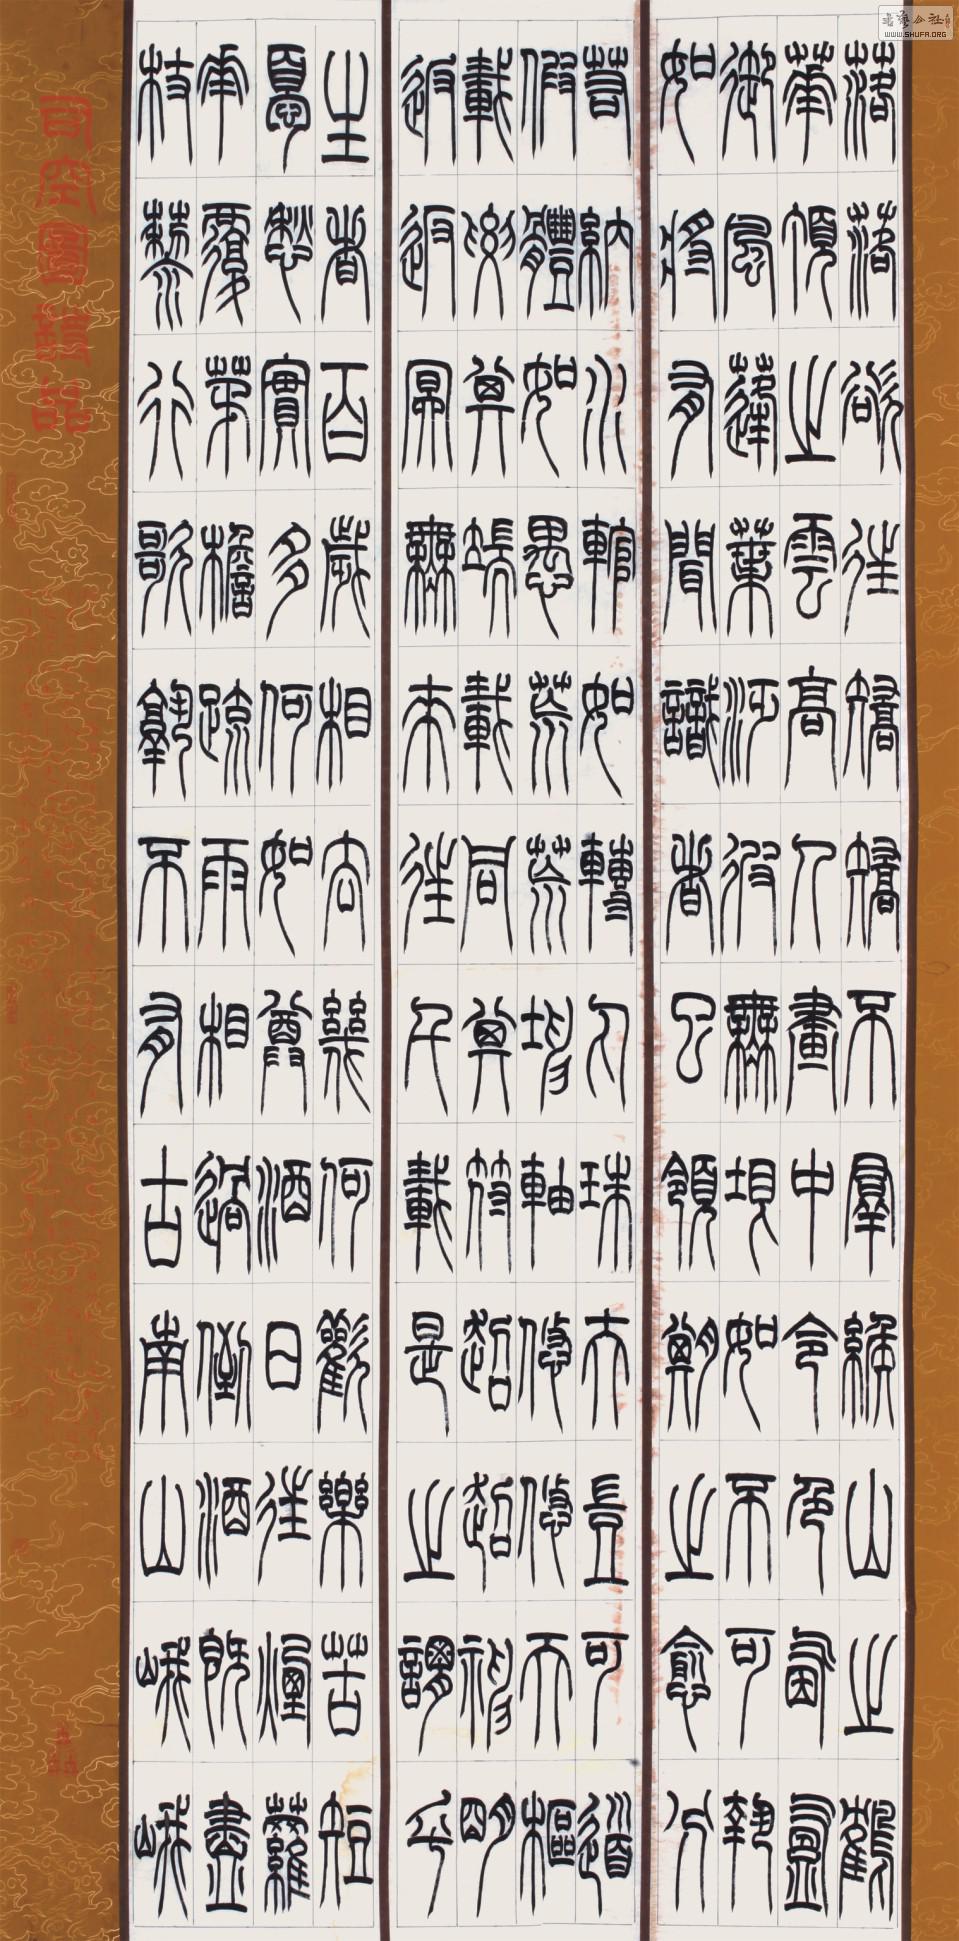 落落欲往矯矯不羣緱山之鶴
華頂之雲高人畫中令色氤氳
御風蓬葉泛彼無垠如不可執
如將有聞識者已領期之愈分
若納水輨如轉丸珠夫豈可道
假體如愚荒荒坤軸悠悠天樞
載要其端載同其符超超神明
返返冥無來往千載是之謂乎
生者百歲相去幾何歡樂苦短
憂愁實多何如尊酒日往煙蘿
花覆茆檐疏雨相過倒酒既盡
杖藜行歌孰不有古南山峨峨
司空圖詩品
書藝公社
WWW.SHUFA.ORG